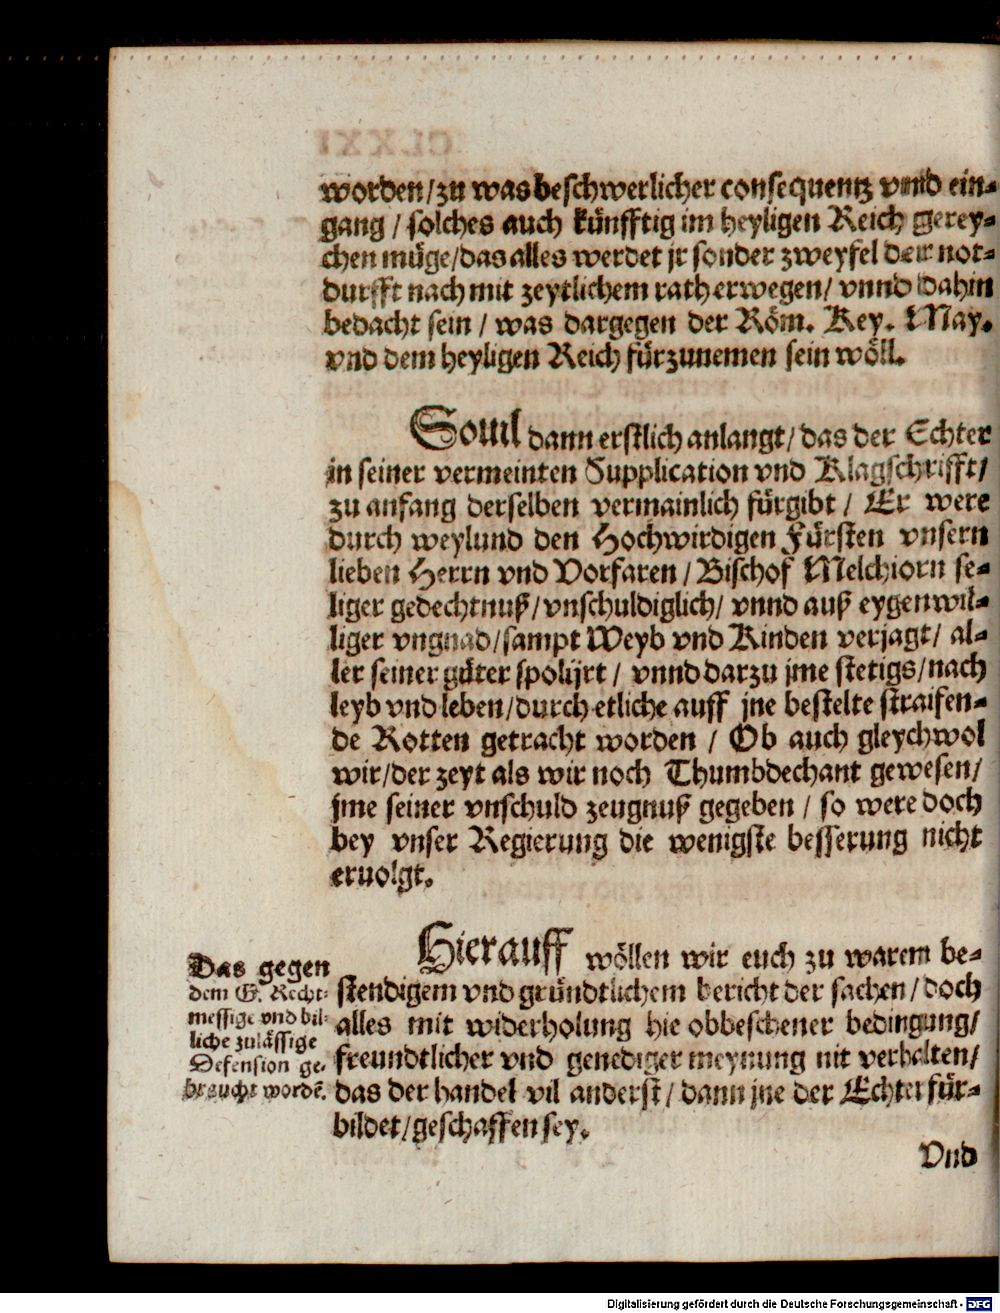 worden/zu was beschwerlicher consequentz vnnd ein-
gang / solches auch künfftig im heyligen Reich gerey-
chen müge/das alles werdet jr sonder zweyfel der not-
durfft nach mit zeytlichem rath erwegen/ vnnd dahin
bedacht sein / was dargegen der Röm. Key. May.
vnd dem heyligen Reich fürzunemen sein wöll.
Souil dann erstlich anlangt/das der Echter
in seiner vermeinten Supplication vnd Klagschrifft/
zu anfang derselben vermainlich fürgibt / Er were
durch weylund den Hochwirdigen Fürsten vnsern
lieben Herrn vnd Vorfaren / Bischof Melchiorn se-
liger gedechtnuß/vnschuldiglich/ vnnd auß eygenwil-
liger vngnad/sampt Weyb vnd Kinden verjagt/ al-
ler seiner güter spolijrt / vnnd darzu jme stetigs/nach
leyb vnd leben/durch etliche auff jne bestelte straifen-
de Rotten getracht worden / Ob auch gleychwol
wir/der zeyt als wir noch Thumbdechant gewesen/
jme seiner vnschuld zeugnuß gegeben / so were doch
bey vnser Regierung die wenigste besserung nicht
eruolgt.
Das gegen
dem E. Recht-
messige vnd bil-
liche zulässige
Defension ge-
braucht wordē.
Hierauff wöllen wir euch zu warem be-
stendigem vnd gründtlichem bericht der sachen/doch
alles mit widerholung hie obbeschener bedingung/
freundtlicher vnd genediger meynung nit verhalten/
das der handel vil anderst / dann jne der Echter für-
bildet/geschaffen sey.
Vnd
Digitalisierung gefördert durch die Deutsche Forschungsgemeinschaft - DFG